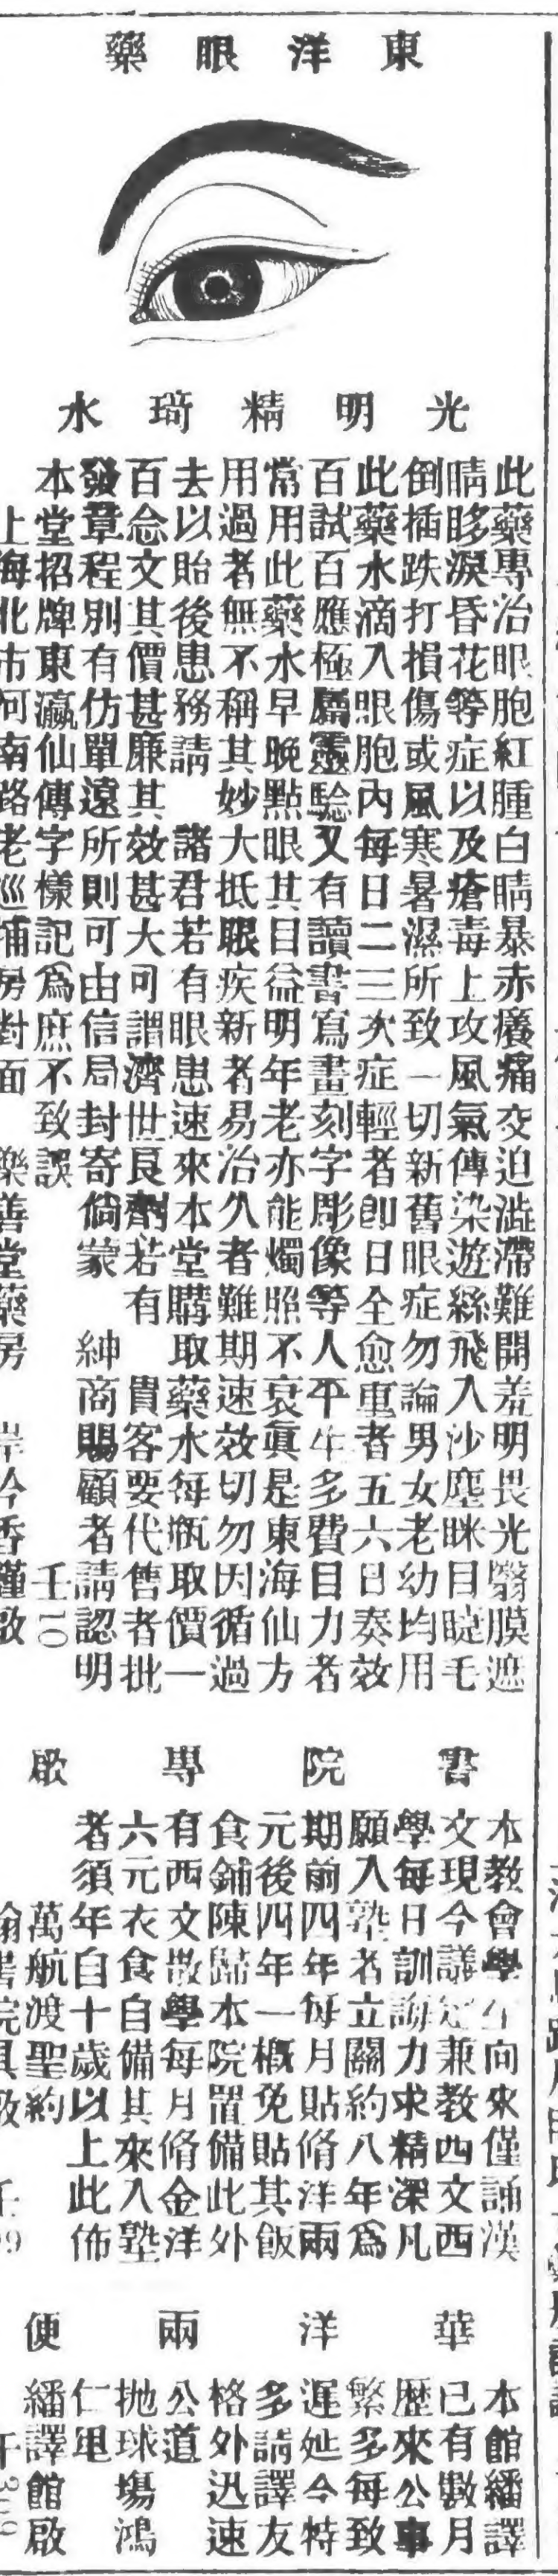 東洋眼藥
光明精琦水
此藥專治眼胞紅腫白睛暴赤癢痛交迫澁滯難開羞明畏光翳膜遮
睛眵淚昏花等症以及瘡毒上攻風氣傳染遊絲飛入沙塵眯目睫毛
倒插跌打損傷或風寒暑濕所致一切新舊眼症勿論男女老幼均用
此藥水滴入眼胞內每日二三次症輕者卽日全愈重者五六日奏效
百試百應極屬靈驗又有讀書寫畫刻字彫像等人平生多費目力者
常用此藥水早晚點眼其目益明年老亦能燭照不衰眞是東海仙方
用過者無不稱其妙大抵眼疾新者易治久者難期速效切勿因循過
去以貽後患務請　諸君若有眼患速來本堂購取藥水每瓶取價一
百念文其價甚廉其效甚大可謂濟世良劑若有　貴客要代售者批
發章程別有仿單遠所則可由信局封寄倘蒙　紳商賜顧者請認明
本堂招牌東瀛仙傳字樣記爲庶不致誤　壬10
上海北市河南路老巡捕房對面　樂善堂藥房　岸吟香謹啟
書院專啟
本教會學生向來僅誦漢
文現今議定兼教西文西
學每日訓誨力求精深凡
願入塾者立關約八年爲
期前四年每月貼脩洋兩
元後四年一概免貼其飯
食鋪陳歸本院置備此外
有西文散學每月脩金洋
六元衣食自備其來入塾
者須年自十歲以上此佈
萬航渡聖約
翰書院具啟
華洋兩便
本館繙譯
已有數月
歷來公事
繁多每致
遲延今特
多請譯友
格外迅速
公道
拋球場鴻
仁里
繙譯館啟